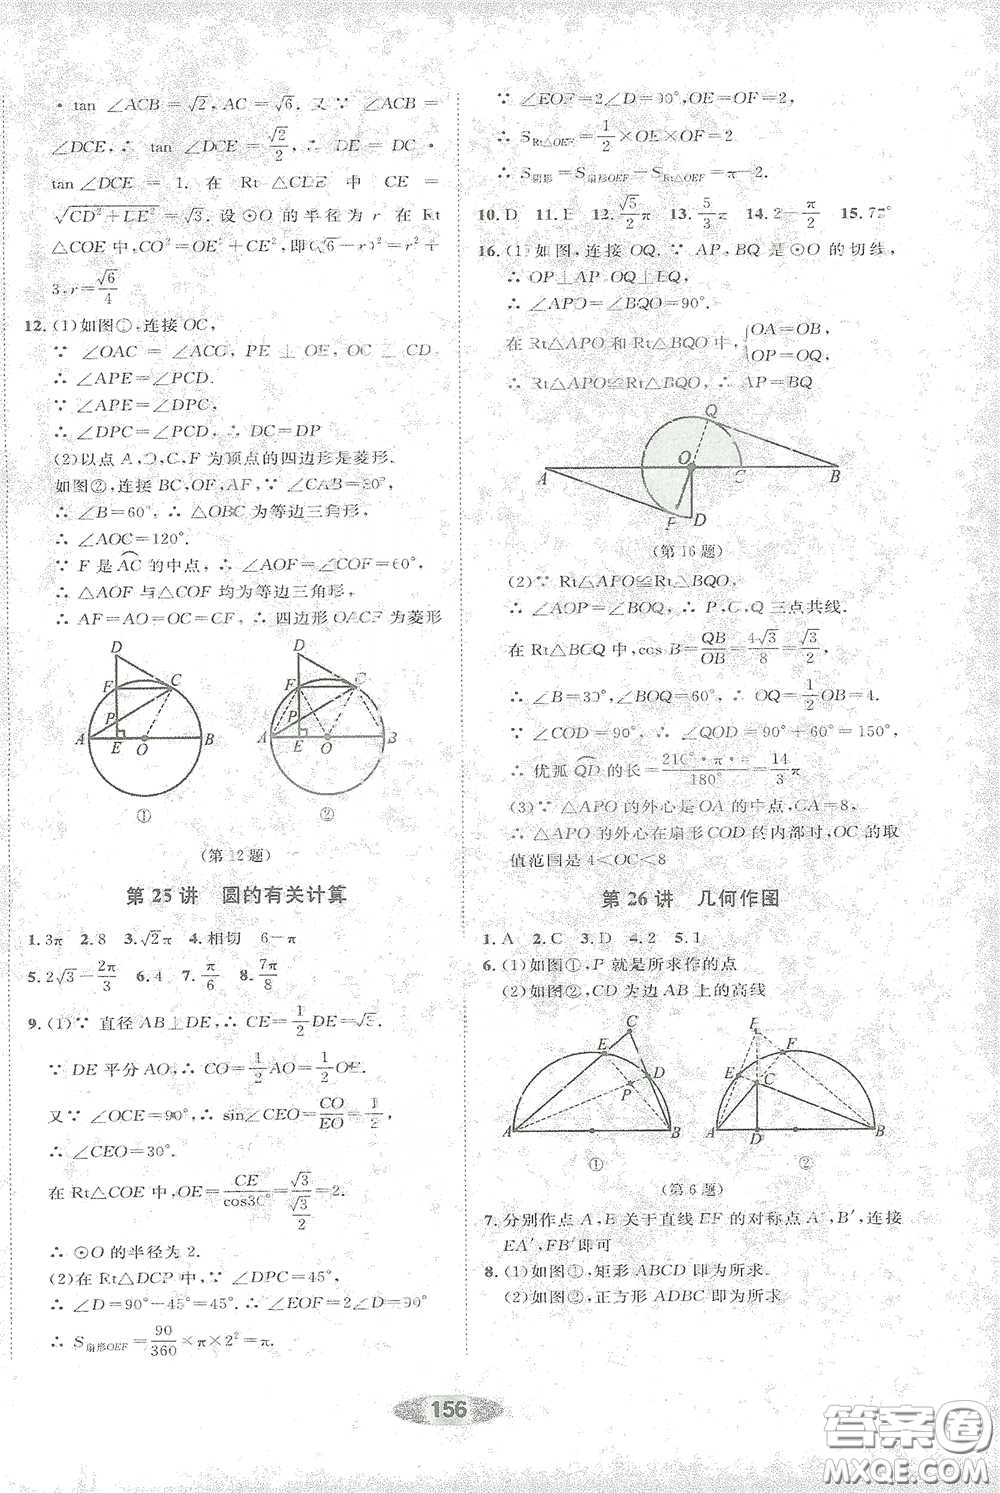 · tan ∠ACB=√2, AC=√6. 又∵ ∠ACB=
∠DCE, ∴ tan ∠DCE=√2/2, ∴ DE=DC·
tan∠DCE = 1. 在 Rt △CDE 中 CE =
√(CD²+DE²)=√3. 设 ⊙O 的半径为 r 在 Rt
△COE 中, CO²=OE²+CE², 即(√6-r)²=r²+
3. r=√6/4
12. (1)如图①, 连接 OC,
∵ ∠OAC = ∠ACO, PE ⊥ OE, OC ⊥ CD,
∴ ∠APE=∠PCD.
∵ ∠APE=∠DPC,
∴ ∠DPC=∠PCD ∴ DC=DP
(2)以点 A,O,C,F 为顶点的四边形是菱形.
如图②, 连接 BC,OF,AF, ∵ ∠CAB=30°,
∴ ∠B=60°, ∴ △OBC 为等边三角形,
∴ ∠AOC=120°.
∵ F 是 AC 的中点, ∴ ∠AOF=∠COF=60°,
∴ △AOF 与 △COF 均为等边三角形,
∴ AF=AO=OC=CF, ∴ 四边形 OACF 为菱形
D F C P A E O B
D F C P A E O B
① ②
(第12题)
第 25 讲 圆的有关计算
1. 3π 2. 8 3. √2π 4. 相切 6-π
5. 2√3-2π/3 6. 4 7. π/6 8. 7π/8
9. (1)∵ 直径 AB⊥DE, ∴ CE=1/2DE=√3.
∵ DE 平分 AO, ∴ CO=1/2AO=1/2OE.
又∵ ∠OCE=90°, ∴ sin∠CEO=CO/EO=1/2,
∴ ∠CEO=30°.
在 Rt△COE 中, OE=CE/cos30°=√3/(√3/2)=2.
∴ ⊙O 的半径为 2.
(2)在 Rt△DCP 中, ∵ ∠DPC=45°,
∴ ∠D=90°-45°=45°, ∴ ∠EOF=2∠D=90°
∴ S扇形OEF=90/360×π×2²=π.
∵ ∠EOF=2∠D=90°, OE=OF=2,
∴ S Rt△OEF=1/2×OE×OF=2
∴ S阴影=S扇形OEF-S Rt△OEF=π-2.
10. D 11. 12. √5/2π 13. 5/3π 14. 2-π/2 15.
16. (1)如图, 连接 OQ, ∵ AP、BQ 是 ⊙O 的切线,
∴ OP⊥AP OQ⊥BQ,
∴ ∠APO=∠BQO=90°.
在 Rt△APO 和 Rt△BQO 中, {OA=OB, OP=OQ,
∴ Rt△APO≌Rt△BQO ∴ AP=BQ
Q A O C B P D
(第16题)
(2)∵ Rt△APO≌Rt△BQO,
∴ ∠AOP=∠BOQ ∴ P、O、Q 三点共线.
在 Rt△BOQ 中, cos B=QB/OB=4√3/8=√3/2,
∴ ∠B=30°, ∠BOQ=60° ∴ OQ=1/2OB=4.
∵ ∠COD=90°, ∴ ∠QOD=90°+60°=150°
∴ 优弧 QD 的长=210°·π·4/180°=14/3π
(3)∵ △APO 的外心是 OA 的中点, OA=8,
∴ △APO 的外心在扇形 COD 的内部时, OC 的取
值范围是 4<OC<8
第 26 讲 几何作图
1. A 2. C 3. D 4. 2 5. 1
6. (1)如图①, P 就是所求作的点
(2)如图②, CD 为边 AB 上的高线
C E D P A B
P F E C A D B
① ②
(第6题)
7. 分别作点 A, B 关于直线 EF 的对称点 A′, B′, 连接
EA′, FB′ 即可
8. (1)如图①, 矩形 ABCD 即为所求.
(2)如图②, 正方形 ADBC 即为所求
156
答案圈
MXQE.COM